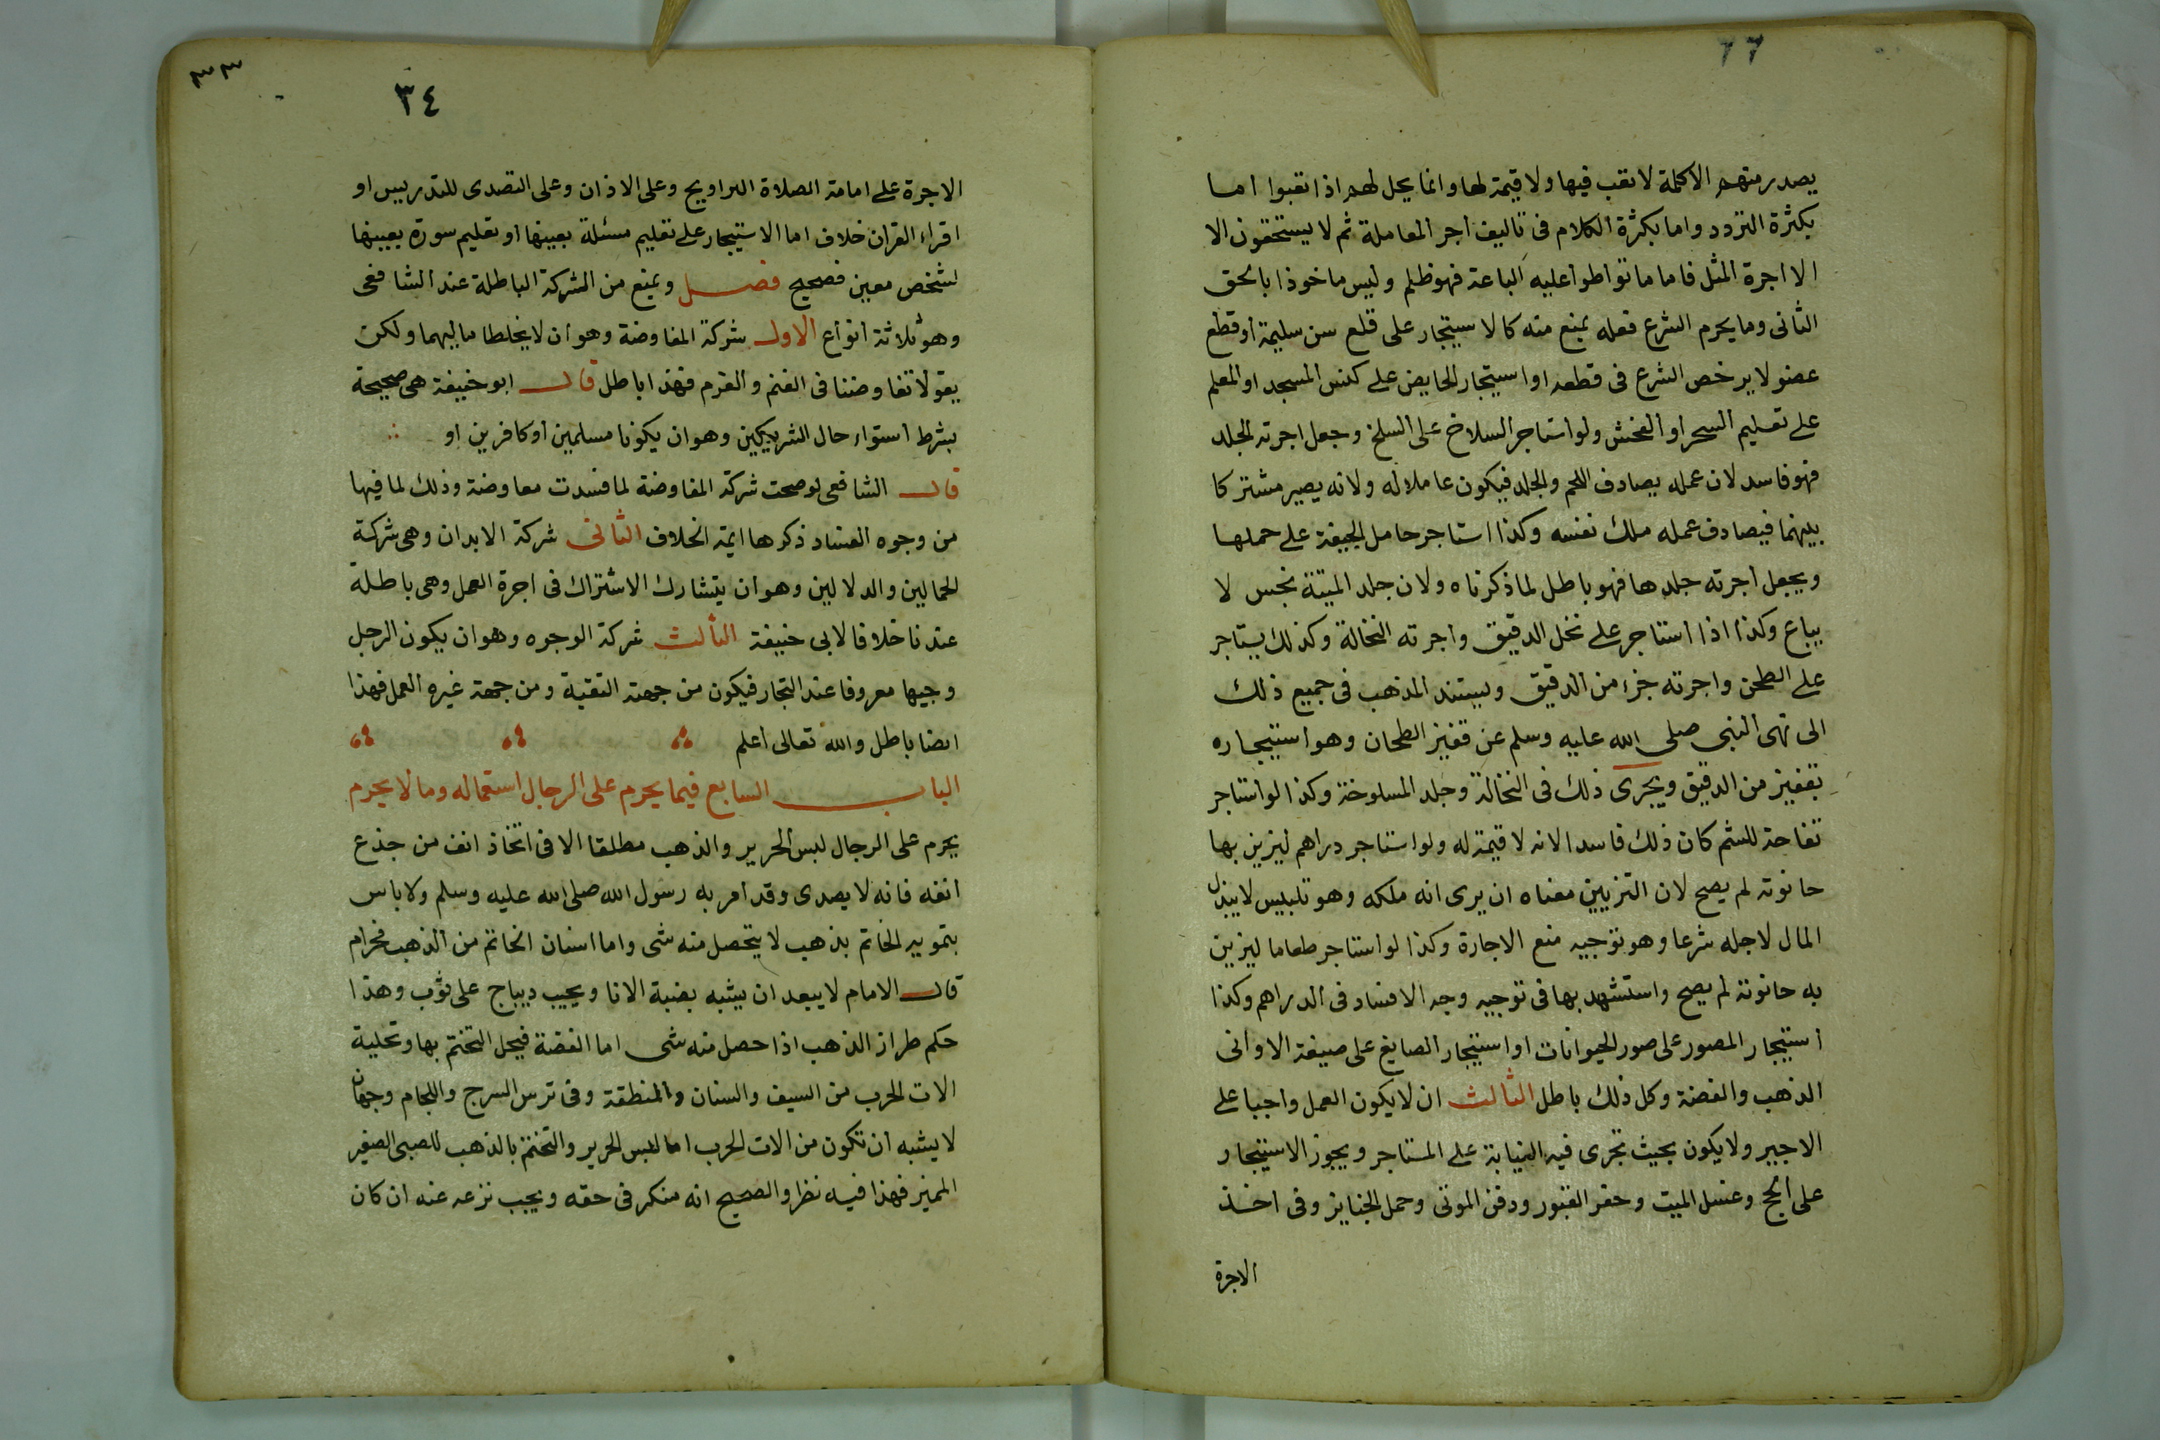 ٦٦
يصدر منهم الا كلمة لا تعب فيها ولا قيمة لها وانما يحل لهم اذا تعبوا اما
بكثرة التردد واما بكثرة الكلام فى تاليف اجر المعاملة ثم لا يستحقون الا
الا اجرة المثل فاما ما تواطوا عليه الباعة فهو ظلم وليس ماخوذا بالحق
الثانى وما يحرم الشرع فعله يمنع منه كالاستيجار على قلع سن سليمة او قطع
عضو لا يرخص الشرع فى قطعه او استيجار الحايض على كنس المسجد او المعلم
على تعليم السحر او الفحش ولو استاجر السلاخ على السلخ وجعل اجرته الجلد
فهو فاسد لان عمله يصادف اللحم والجلد فيكون عاملا له ولانه يصير مشتركا
بينهما فيصادف عمله ملك نفسه وكذا استاجر حامل الجيفة على حملها
ويجعل اجرته جلدها فهو باطل لما ذكرناه ولان جلد الميتة نجس لا
يباع وكذا اذا استاجر على نخل الدقيق واجرته النخالة وكذلك يستاجر
على الطحن واجرته جزء من الدقيق ويستند المذهب فى جميع ذلك
الى نهى النبى صلى الله عليه وسلم عن قفيز الطحان وهو استيجاره
بقفيز من الدقيق ويجرى ذلك فى النخالة وجلد المسلوخة وكذا لو استاجر
تفاحة للشم كان ذلك فاسدا لانه لا قيمة له ولو استاجر دراهم ليزين بها
حانوته لم يصح لان التزيين معناه ان يرى انه ملكه وهو تلبيس لا يبذل
المال لاجله شرعا وهو توجيه منع الاجارة وكذا لو استاجر طعاما ليزين
به حانوته لم يصح واستشهد بها فى توجيه وجه الافساد فى الدراهم وكذا
استيجار المصور على صور الحيوانات او استيجار الصايغ على صيغة الاوانى
الذهب والفضة وكل ذلك باطل الثالث ان لا يكون العمل واجبا على
الاجير ولا يكون بحيث تجرى فيه النيابة على المستاجر ويجوز الاستيجار
على الحج وغسل الميت وحفر القبور ودفن الموتى وحمل الجنايز وفى اخذ
الاجرة
٣٣
٣٤
الاجرة على امامة الصلاة التراويح وعلى الاذان وعلى التصدى للتدريس او
اقراء القران خلاف اما الاستيجار على تعليم مسئلة بعينها او تعليم سورة بعينها
لشخص معين فصحيح فصل ويمنع من الشركة الباطلة عند الشافعى
وهو ثلاثة انواع الاول شركة المفاوضة وهو ان لا يخلطا ماليهما ولكن
يقولا تفاوضنا فى الغنم والغرم فهذا باطل قال ابو حنيفة هى صحيحة
بشرط استواء حال الشريكين وهو ان يكونا مسلمين او كافرين او
قال الشافعى لو صحت شركة المفاوضة لما فسدت معاوضة وذلك لما فيها
من وجوه الفساد ذكرها ايمة الخلاف الثانى شركة الابدان وهى شركة
الحمالين والدلالين وهو ان يتشارك الاشتراك فى اجرة العمل وهى باطلة
عندنا خلافا لابى حنيفة الثالث شركة الوجوه وهو ان يكون الرجل
وجيها معروفا عند التجار فيكون من جهته التقبة ومن جهة غيره العمل فهذا
ايضا باطل والله تعالى اعلم
الباب السابع فيما يحرم على الرجال استعماله وما لا يحرم
يحرم على الرجال لبس الحرير والذهب مطلقا الا فى اتخاذ انف من جذع
انفه فانه لا يصدى وقد امر به رسول الله صلى الله عليه وسلم ولا باس
بتمويه الخاتم بذهب لا يتحصل منه شى واما اسنان الخاتم من الذهب فحرام
قال الامام لا يبعد ان يشبه بضبة الانا وبجيب ديباج على ثوب وهذا
حكم طراز الذهب اذا حصل منه شى اما الفضة فيحل التختم بها وتحلية
الات الحرب من السيف والسنان والمنطقة وفى ترس السرج واللجام وجهان
لا يشبه ان تكون من الات الحرب اما لبس الحرير والتختم بالذهب للصبى الصغير
المميز فهذا فيه نظر والصحيح انه منكر فى حقه ويجب نزعه عنه ان كان